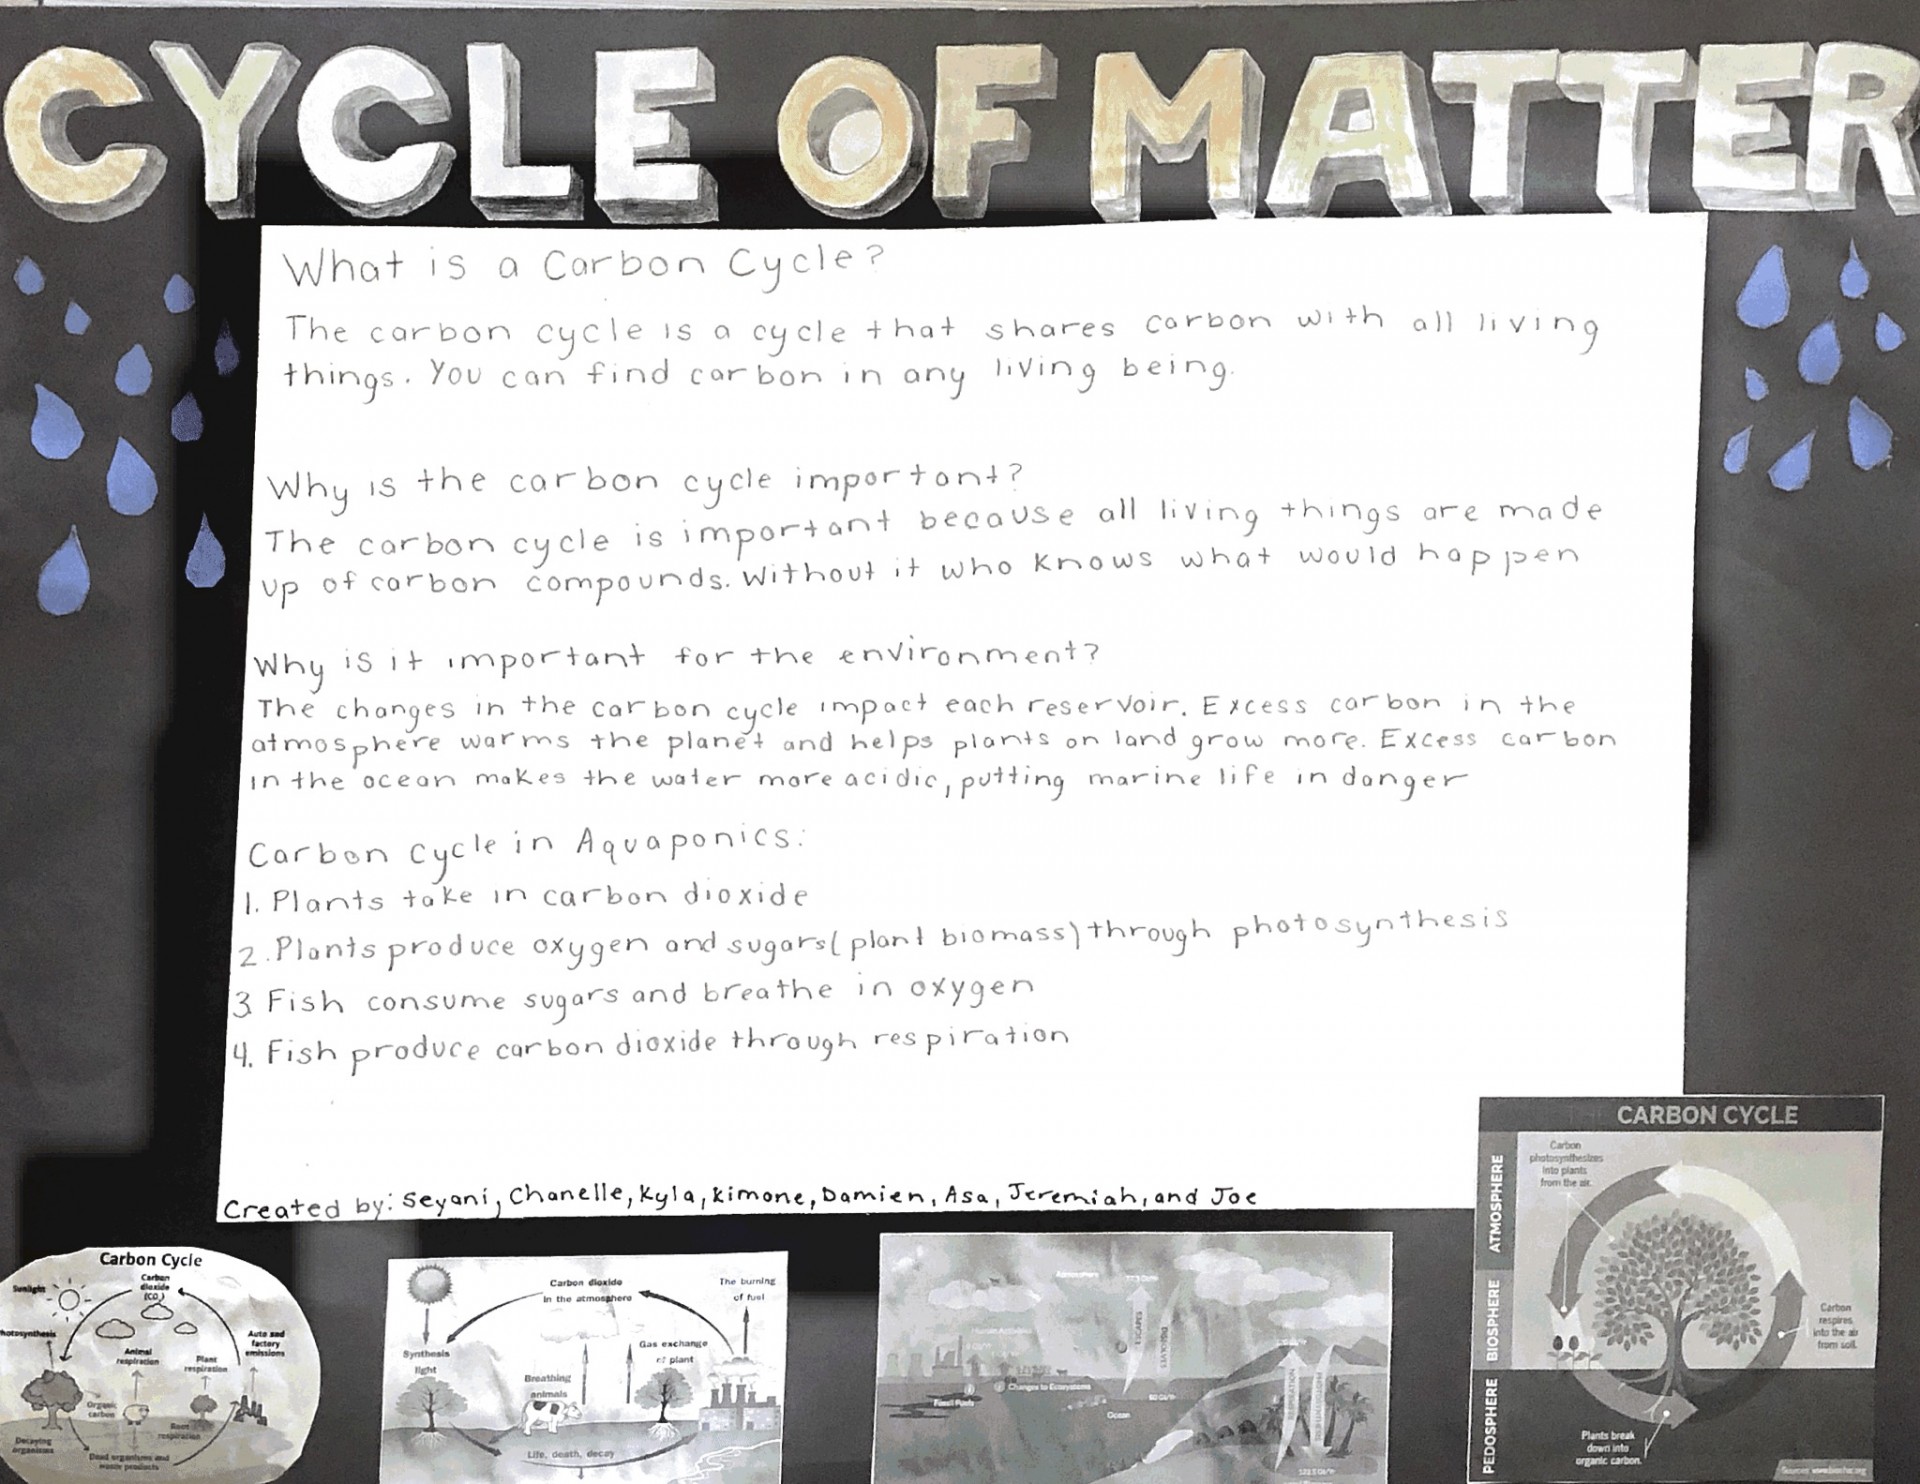 CYCLE OF MATTER
What is a Carbon Cycle?
The carbon cycle is a cycle that shares carbon with all living
things. You can find carbon in any living being.
Why is the carbon cycle important?
The carbon cycle is important because all living things are made
up of carbon compounds. Without it who knows what would happen
Why is it important for the environment?
The changes in the carbon cycle impact each reservoir. Excess carbon in the
atmosphere warms the planet and helps plants on land grow more. Excess carbon
in the ocean makes the water more acidic, putting marine life in danger
Carbon cycle in Aquaponics:
1. Plants take in carbon dioxide
2. Plants produce oxygen and sugars (plant biomass) through photosynthesis
3 Fish consume sugars and breathe in oxygen
4. Fish produce carbon dioxide through respiration
Created by: Seyani, Chanelle, Kyla, Kimone, Damien, Asa, Jeremiah, and Joe
Carbon Cycle
Sunlight
Carbon
dioxide
(CO2)
hotosynthesis
Auto and
factory
emissions
Animal
respiration
Plant
respiration
Organic
carbon
Root
respiration
Decaying
organisms
Dead organisms and
waste products
Carbon dioxide
in the atmosphere
The burning
of fuel
Synthesis
light
Gas exchange
of plant
Breathing
animals
Life, death, decay
Atmosphere
Human Activities
Changes to Ecosystems
Fossil Fuels
Ocean
ESCAPES
DISSOLVES
RESPIRATION
CARBON CYCLE
ATMOSPHERE
BIOSPHERE
PEDOSPHERE
Carbon
photosynthesizes
into plants
from the air.
Carbon
respires
into the air
from soil.
Plants break
down into
organic carbon.